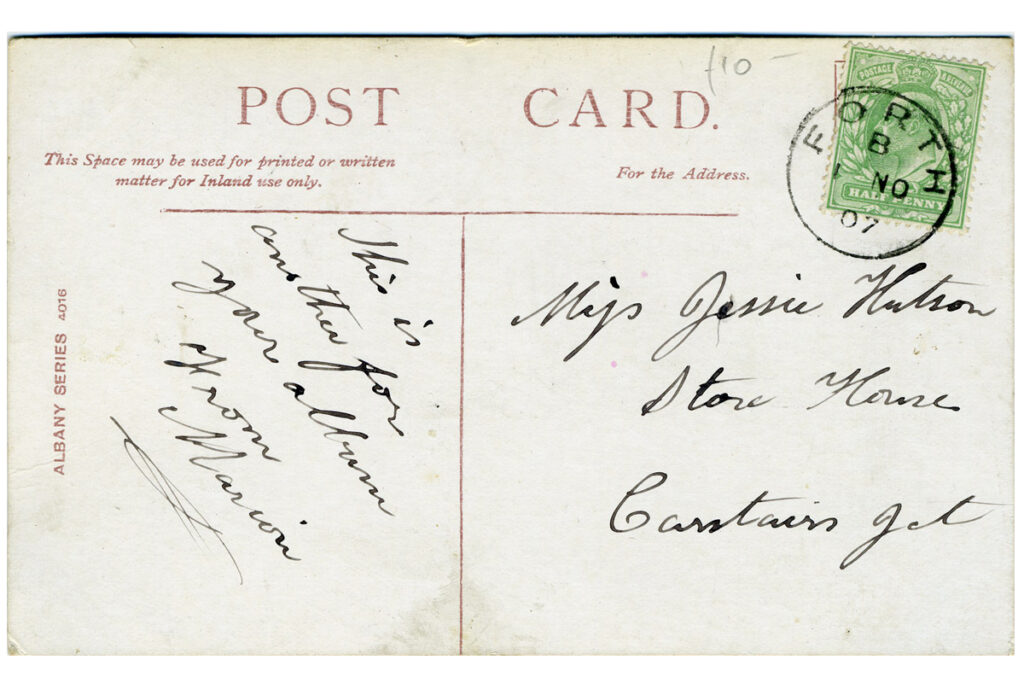 £10 -
POST CARD.
This Space may be used for printed or written
matter for Inland use only.
For the Address.
POSTAGE
HALF PENNY
FORTH
B
NO
07
ALBANY SERIES 4016
This is
another for
your album
From
Marion
Miss Jessie Hutson
Store House
Carstairs Jct